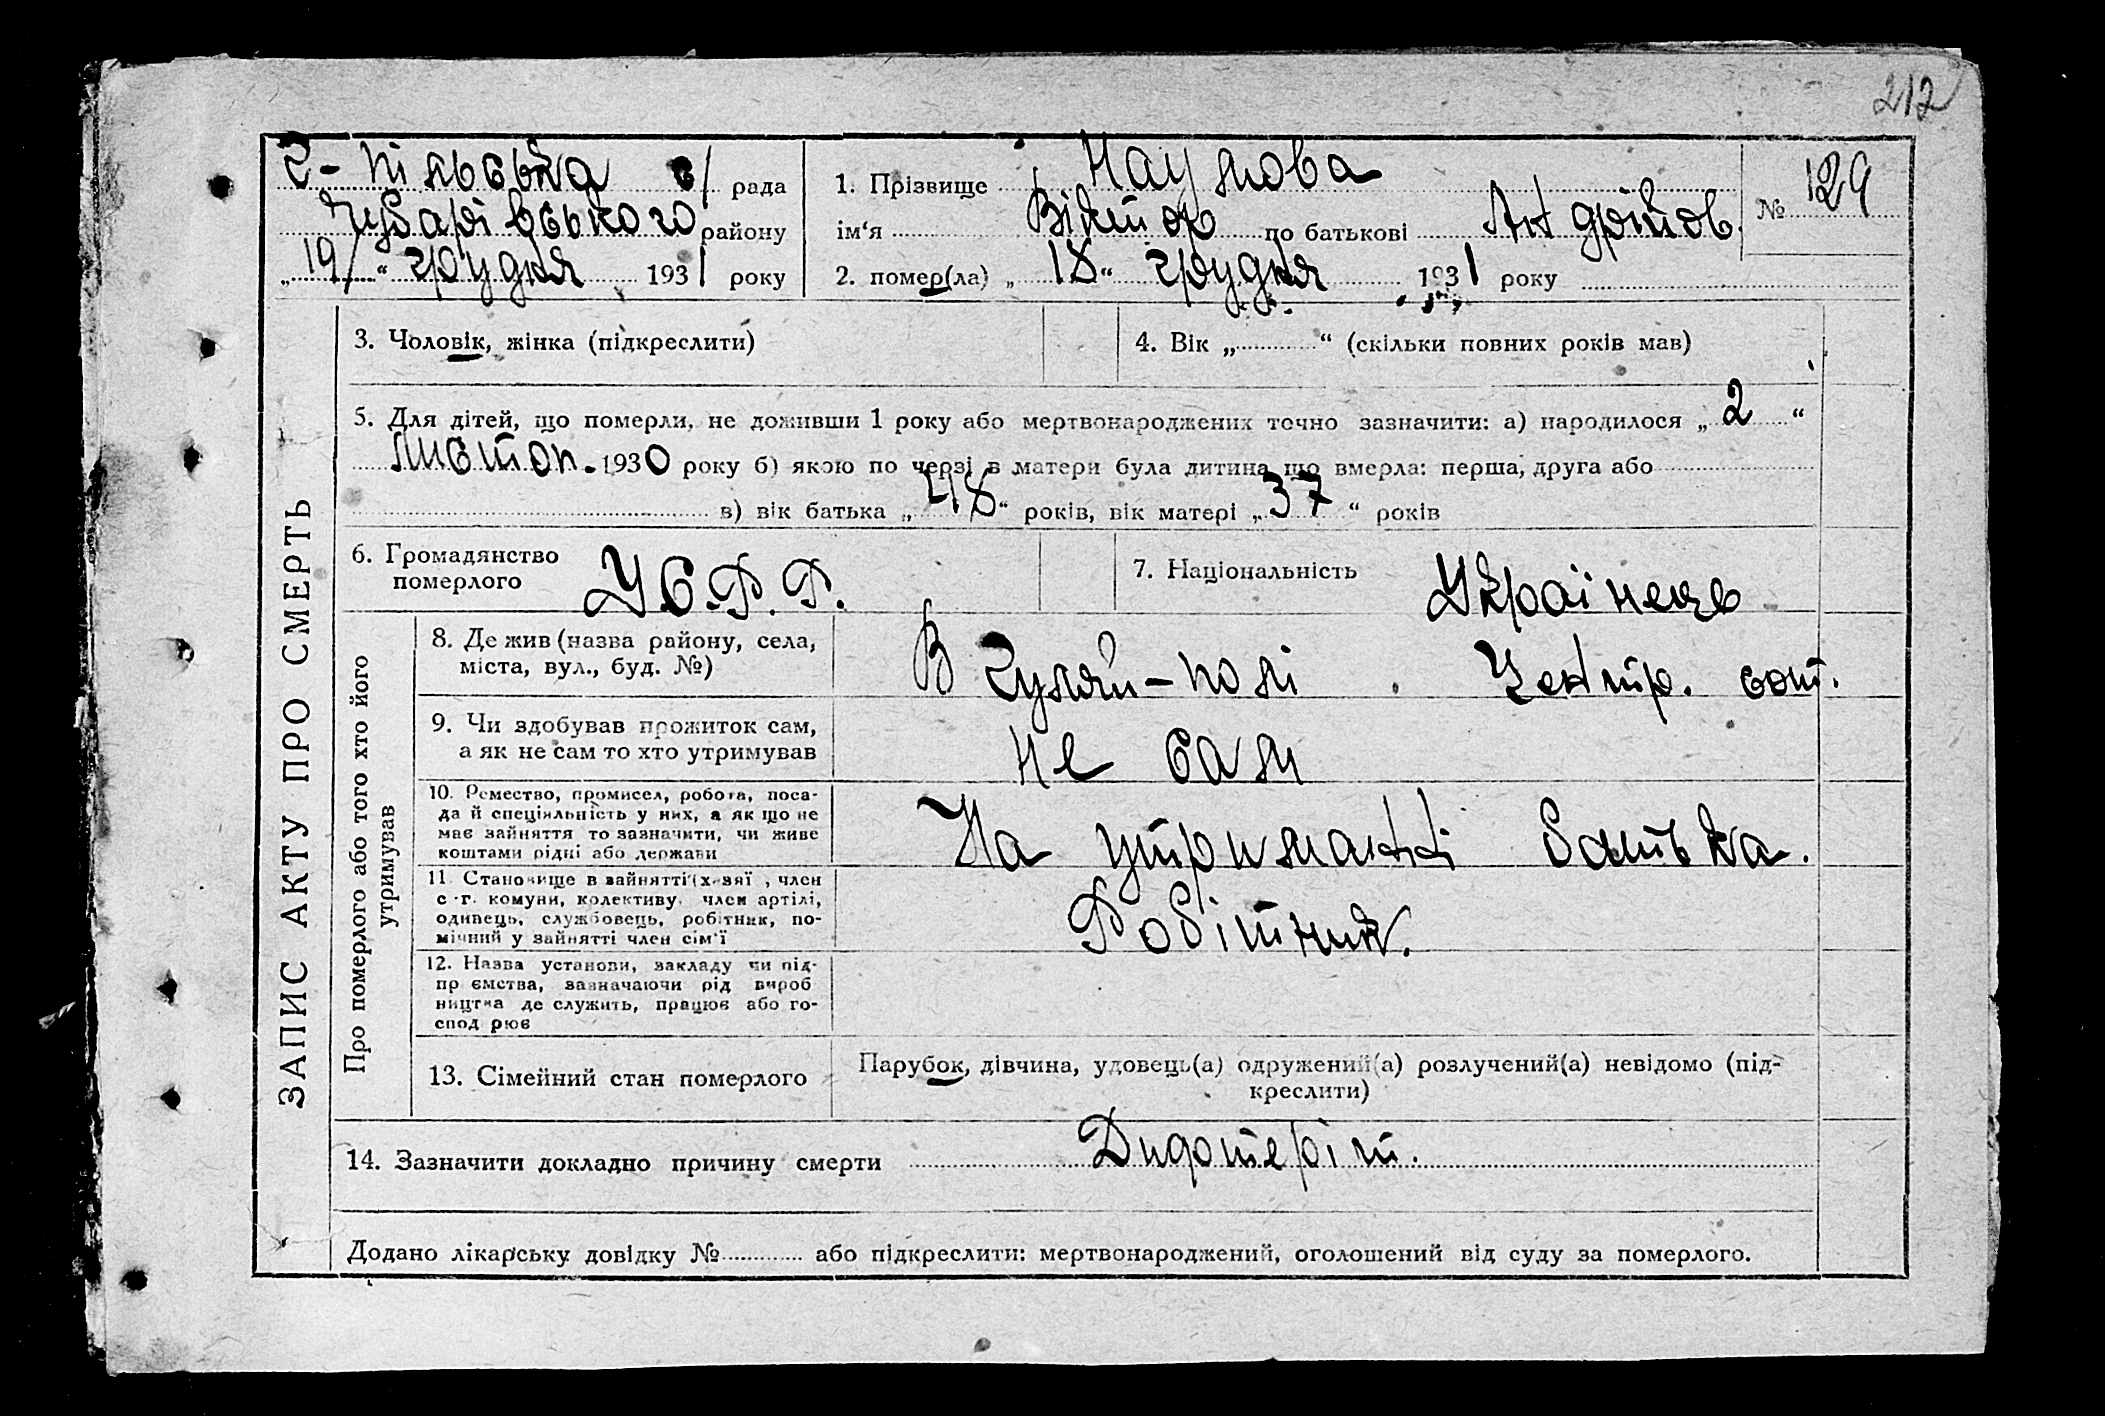 212
Г-пільська с/ рада
Чубарівського району
„19/“ грудня 1931 року
1. Прізвище Наумова
ім‘я Віктор по батькові Андрійов.
№ 129
2. помер(ла) „18“ грудня 1931 року
ЗАПИС АКТУ ПРО СМЕРТЬ
3. Чоловік, жінка (підкреслити)
4. Вік „ “ (скільки повних років мав)
5. Для дітей, що померли, не доживши 1 року або мертвонароджених точно зазначити: а) народилося „2“
листоп. 1930 року б) якою по черзі в матери була дитина що вмерла: перша, друга або
в) вік батька „48“ років, вік матері „37“ років
6. Громадянство
померлого
У.С.Р.Р.
7. Національність Українець
Про померлого або того хто його
утримував
8. Де жив (назва району, села,
міста, вул., буд. №)
В Гуляй-полі Центр. сот.
9. Чи здобував прожиток сам,
а як не сам то хто утримував
не сам
10. Ремество, промисел, робота, поса-
да й спеціяльність у них, а як що не
має зайняття то зазначити, чи живе
коштами рідні або держави
На утриманні батька.
11. Становище в зайнятті (хазяї, член
с.-г. комуни, колективу, член артілі,
одинець, службовець, робітник, по-
мічний у зайнятті член сім‘ї
Робітник.
12. Назва установи, закладу чи під-
пр ємства, зазначаючи рід вироб
ництва де служить, працює або го-
спод рює
13. Сімейний стан померлого
Парубок, дівчина, удовець(а) одружений(а) розлучений(а) невідомо (під-
креслити)
14. Зазначити докладно причину смерти
Додано лікарську довідку № або підкреслити: мертвонароджений, оголошений від суду за померлого.